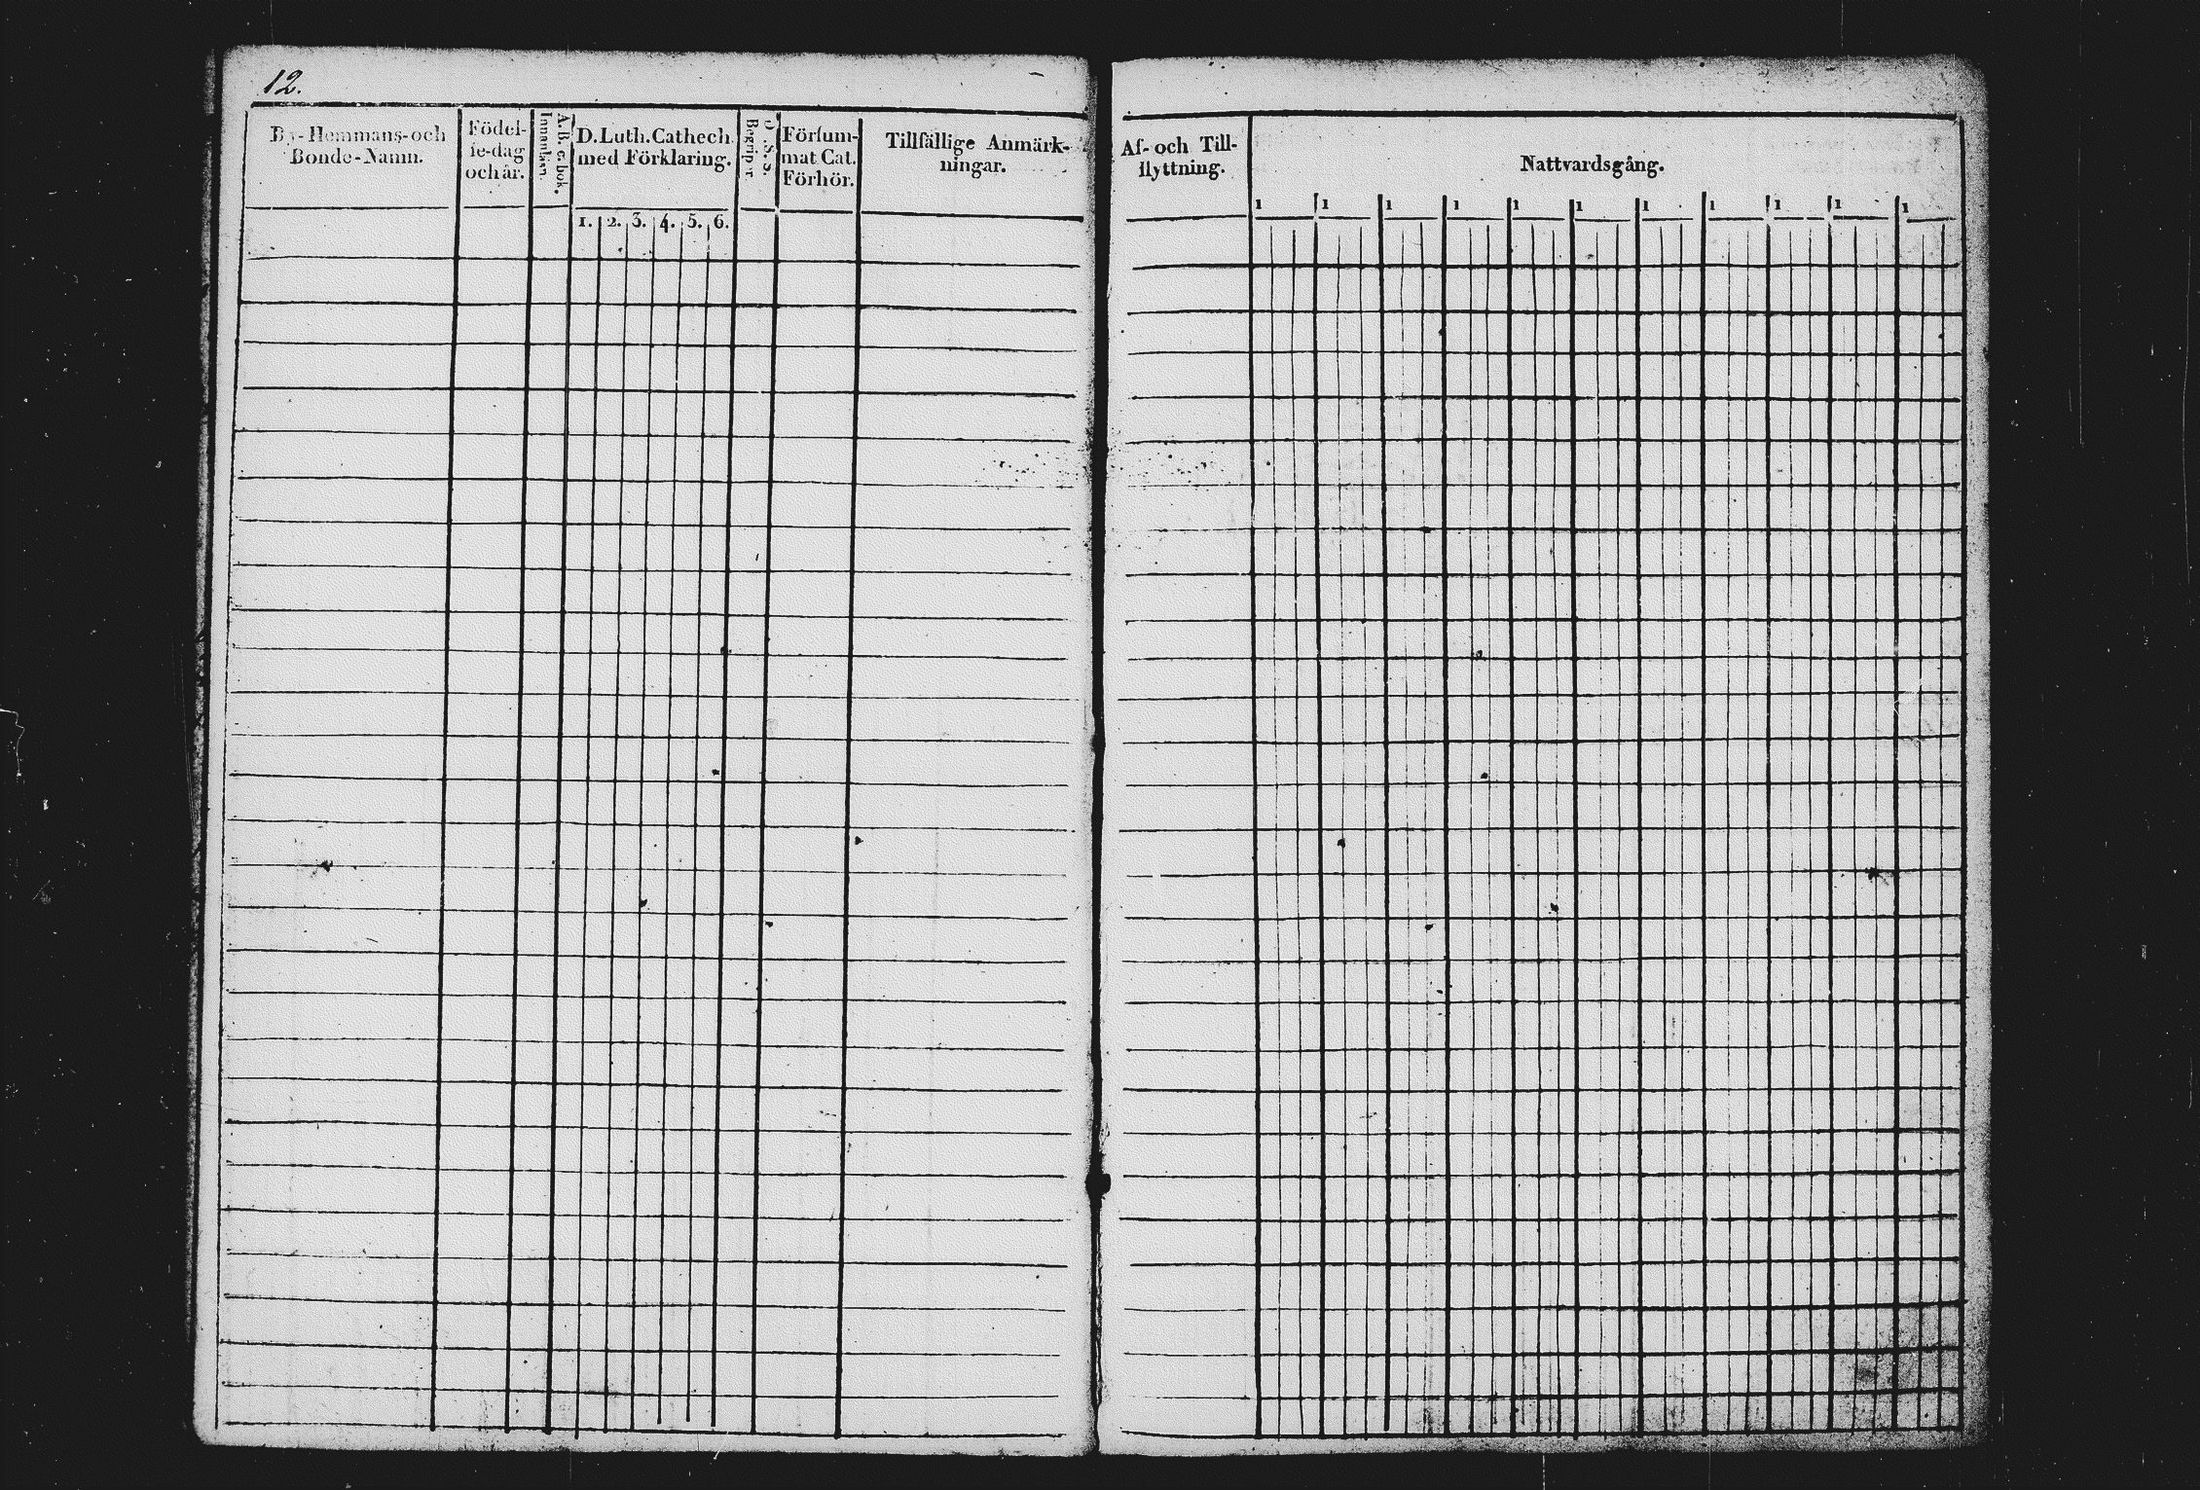 12.
By-Hemmans-och
Bonde-Namn.
Födel-
ſe-dag
och år.
A. B. C. bok.
Innanläsn.
D. Luth. Cathech.
med Förklaring.
1. 2. 3. 4. 5. 6.
Begriper
Förſum-
mat Cat.
Förhör.
Tillfällige Anmärk-
ningar.
Af- och Till-
flyttning.
Nattvardsgång.
1 1 1 1 1 1 1 1 1 1 1